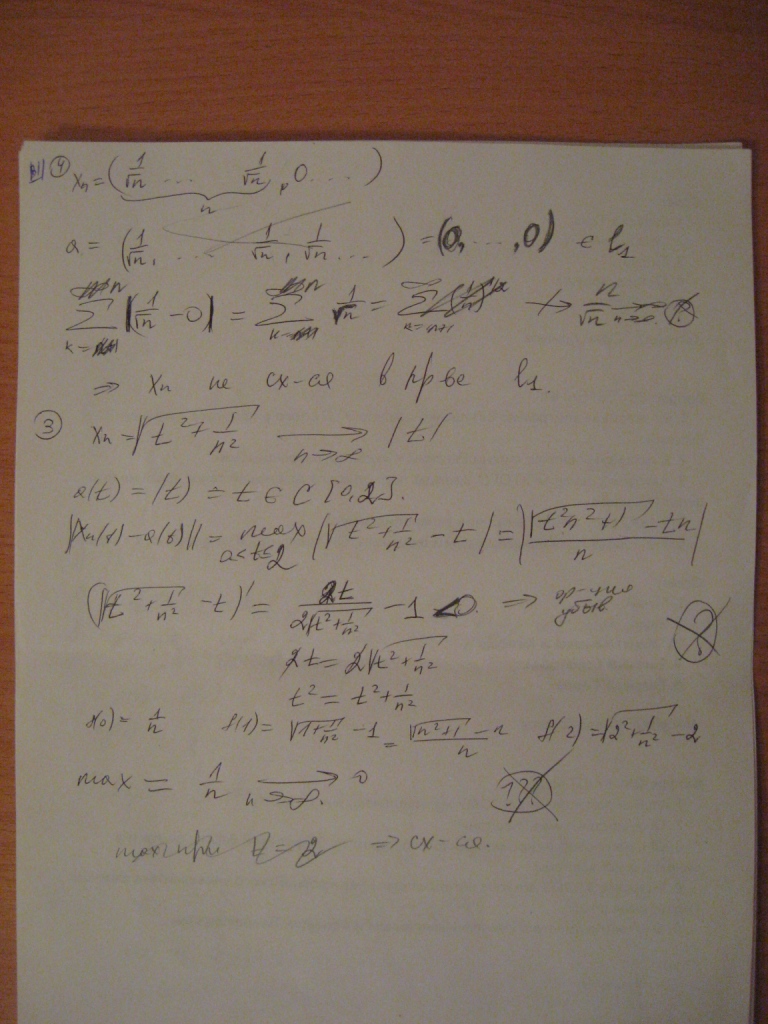 ④ xₙ = (1/√n ... 1/√n, 0 ... )
n
a = (1/√n, ... 1/√n, 1/√n ... ) = (0, ..., 0) ∈ l₁
∑ |1/√n − 0| = ∑ 1/√n = n/√n n→∞
⇒ xₙ не сх-ся в пр-ве l₁.
③ xₙ = √(t² + 1/n²) → n→∞ |t|
a(t) = |t| = t ∈ C[0,2].
||xₙ(t) − a(t)|| = max 0≤t≤2 |√(t² + 1/n²) − t| = |(√(t²n² + 1) − tn)/n|
(√(t² + 1/n²) − t)' = 2t/(2√(t² + 1/n²)) − 1 < 0. ⇒ ф-ция убыв
2t = 2√(t² + 1/n²)
t² = t² + 1/n²
f(0) = 1/n f(1) = √(1 + 1/n²) − 1 = (√(n² + 1) − n)/n f(2) = √(2² + 1/n²) − 2
max = 1/n → n→∞ 0
max при t = 2 ⇒ сх-ся.